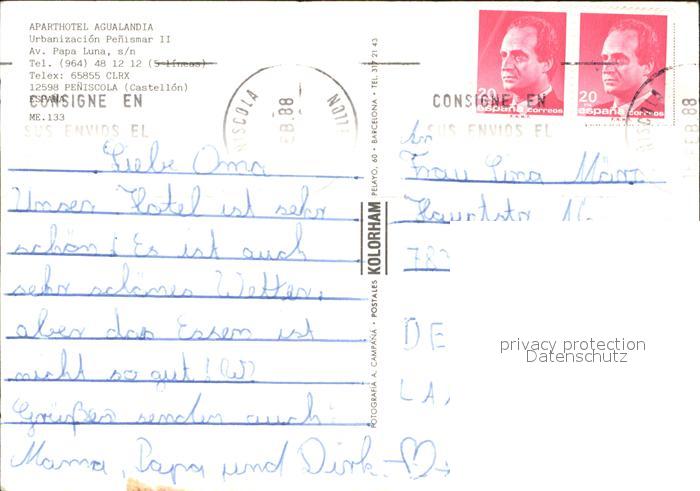 APARTHOTEL AGUALANDIA
Urbanización Peñismar II
Av. Papa Luna, s/n
Tel. (964) 48 12 12 (5 líneas)
Telex: 65855 CLRX
12598 PEÑISCOLA (Castellón)
ESPAÑA
ME.133
CONSIGNE EN
SUS ENVIOS EL
88
Liebe Oma
Unser Hotel ist sehr
schön! Es ist auch
sehr schönes Wetter,
aber das Essen ist
nicht so gut!
Grüße senden auch:
Mama, Papa und Dirk.
FOTOGRAFIA A. CAMPAÑA • POSTALES KOLORHAM PELAYO, 60 • BARCELONA • TEL. 317 21 43
20 españa correos
20 españa correos
CONSIGNE EN
SUS ENVIOS EL
88
An
Frau Lina
Hauptstr
DE
LA,
privacy protection
Datenschutz